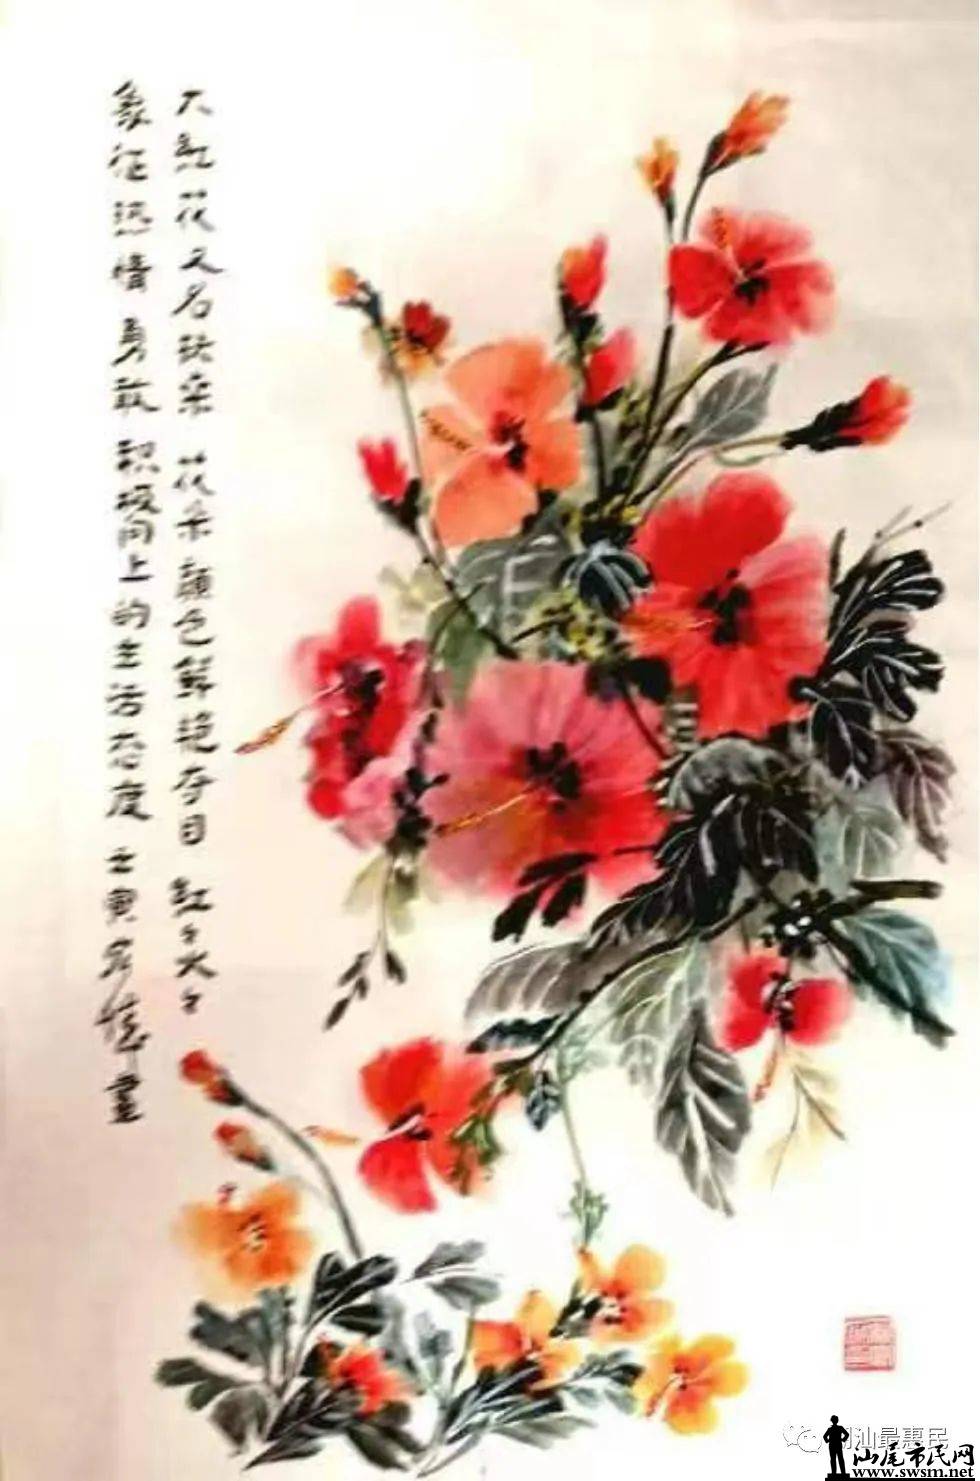 大红花又名扶桑 花朵颜色鲜艳夺目 红々火々
象征热情勇敢积极向上的生活态度 壬寅 画
汕最惠民
汕尾市民网
www.swsm.net